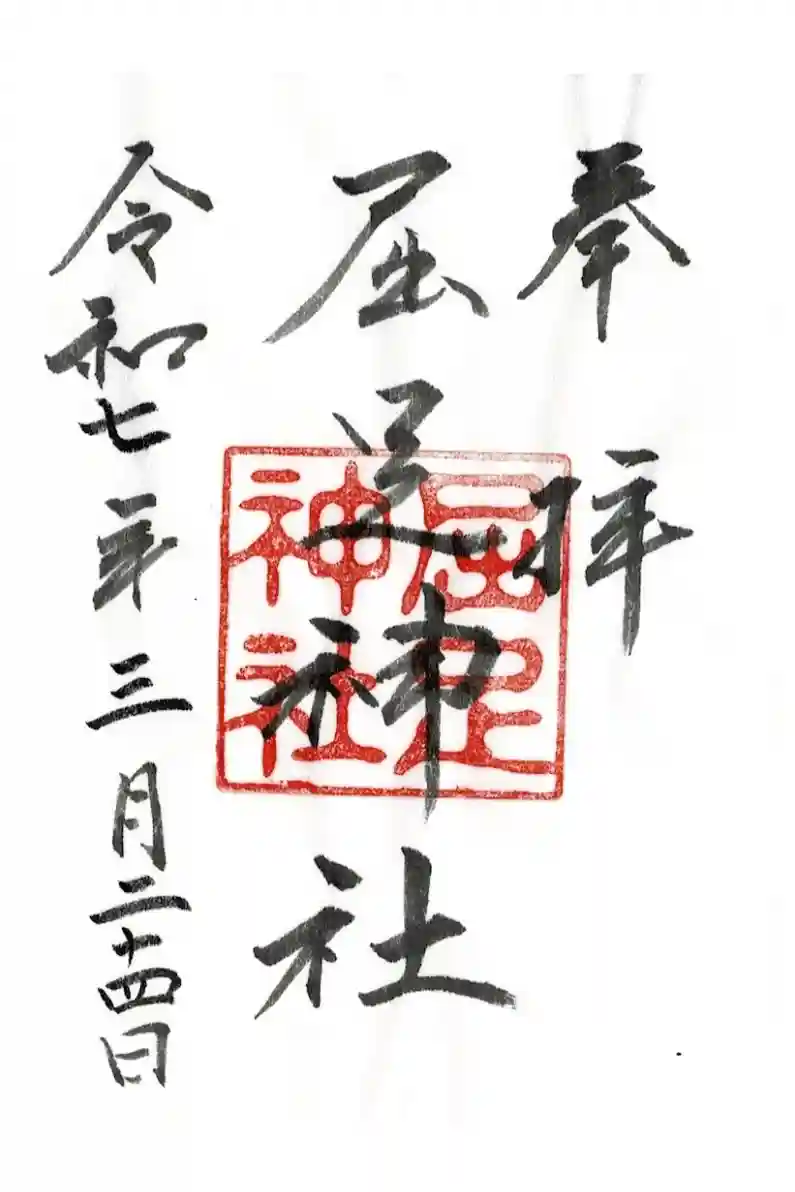 奉拝
屈足神社
屈足
神社
令和七年三月二十四日